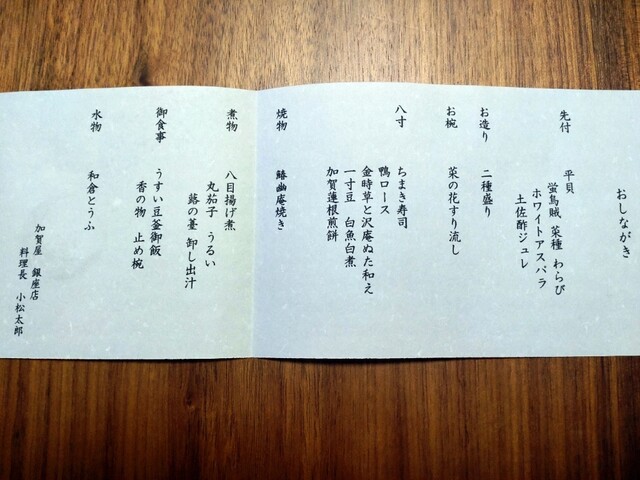 おしながき
先付
平貝
蛍烏賊 菜種 わらび
ホワイトアスパラ
土佐酢ジュレ
お造り 二種盛り
お椀 菜の花すり流し
八寸 ちまき寿司
鴨ロース
金時草と沢庵ぬた和え
一寸豆 白魚白煮
加賀蓮根煎餅
焼物 鰆幽庵焼き
煮物 八目揚げ煮
丸茄子 うるい
蕗の薹 卸し出汁
御食事 うすい豆釜御飯
香の物 止め椀
水物 和倉とうふ
加賀屋 銀座店
料理長 小松太郎